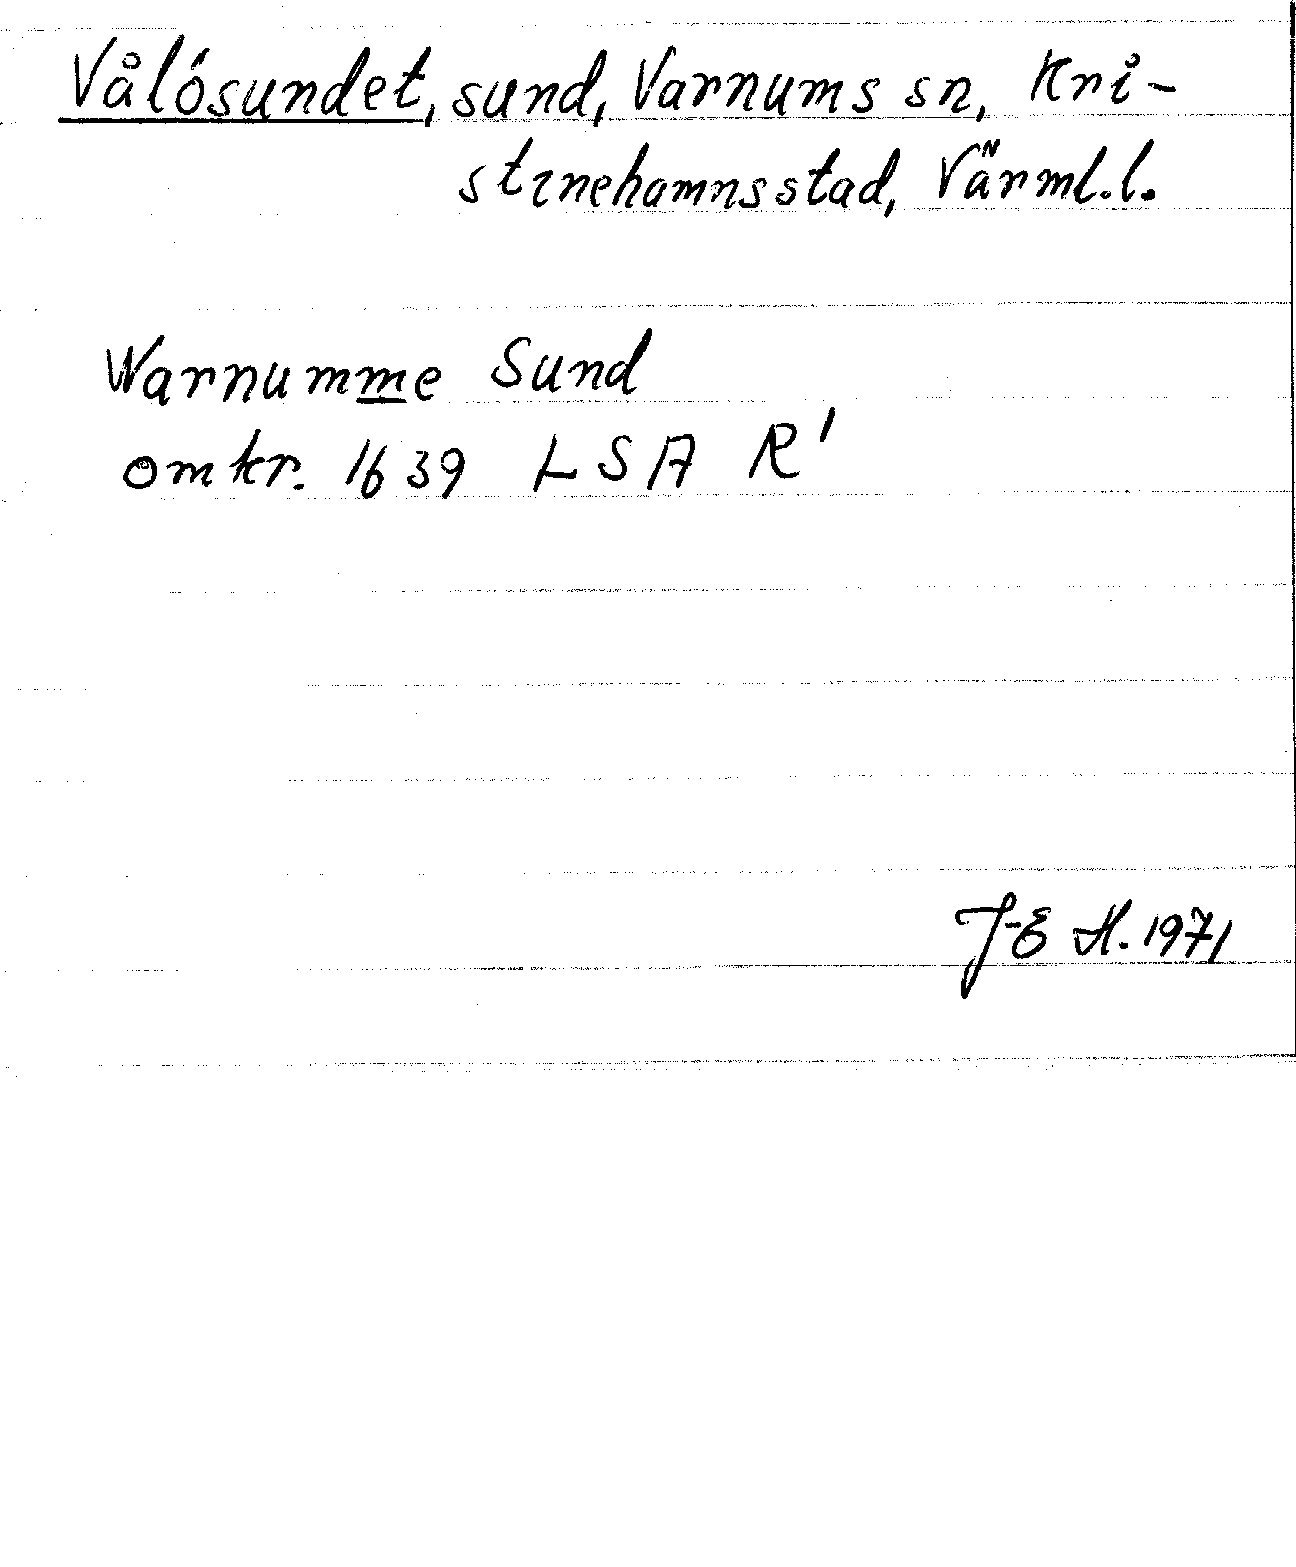 Vålösundet, sund, Varnums sn, Kri-
stinehamnsstad, Värml.l.
Warnumme Sund
omkr. 1639 LSA R'
J-E H. 1971